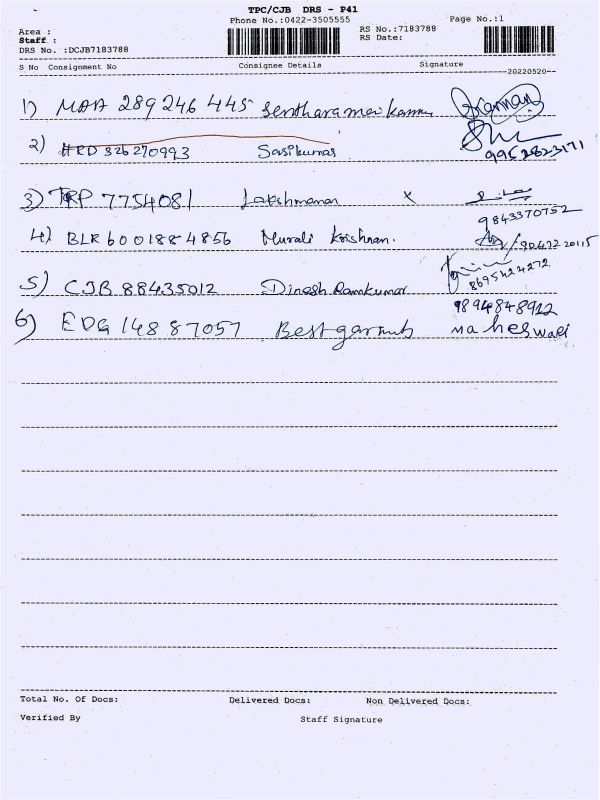 TPC/CJB DRS - P41
Phone No.:0422-3505555 Page No.:1
Area :
Staff :
DRS No. :DCJB7183788
RS No.:7183788
RS Date:
S No Consignment No Consignee Details Signature
20220520
1) MAA 289 246 445 Kannan
2) HRD 326270993 Sasikumar
3) TRP 7754081 Lakshmanan x
9843370752
4) BLR 6001884856 Murali Krishnan.
5) CJB 88435012 Dinesh Ramkumar
8695424272
9894848912
6) EDG 14887057 Best garments maheswari
Total No. Of Docs: Delivered Docs: Non Delivered Docs:
Verified By Staff Signature